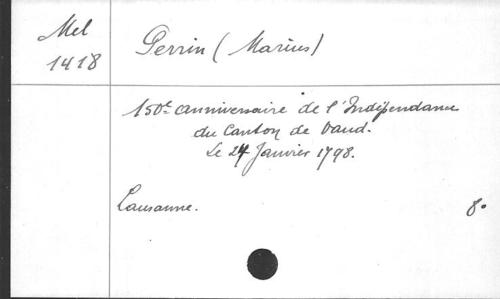 Mel
1418
Perrin (Marius)
150e anniversaire de l'Indépendance
du Canton de Vaud.
Le 24 Janvier 1798.
Lausanne.
8°